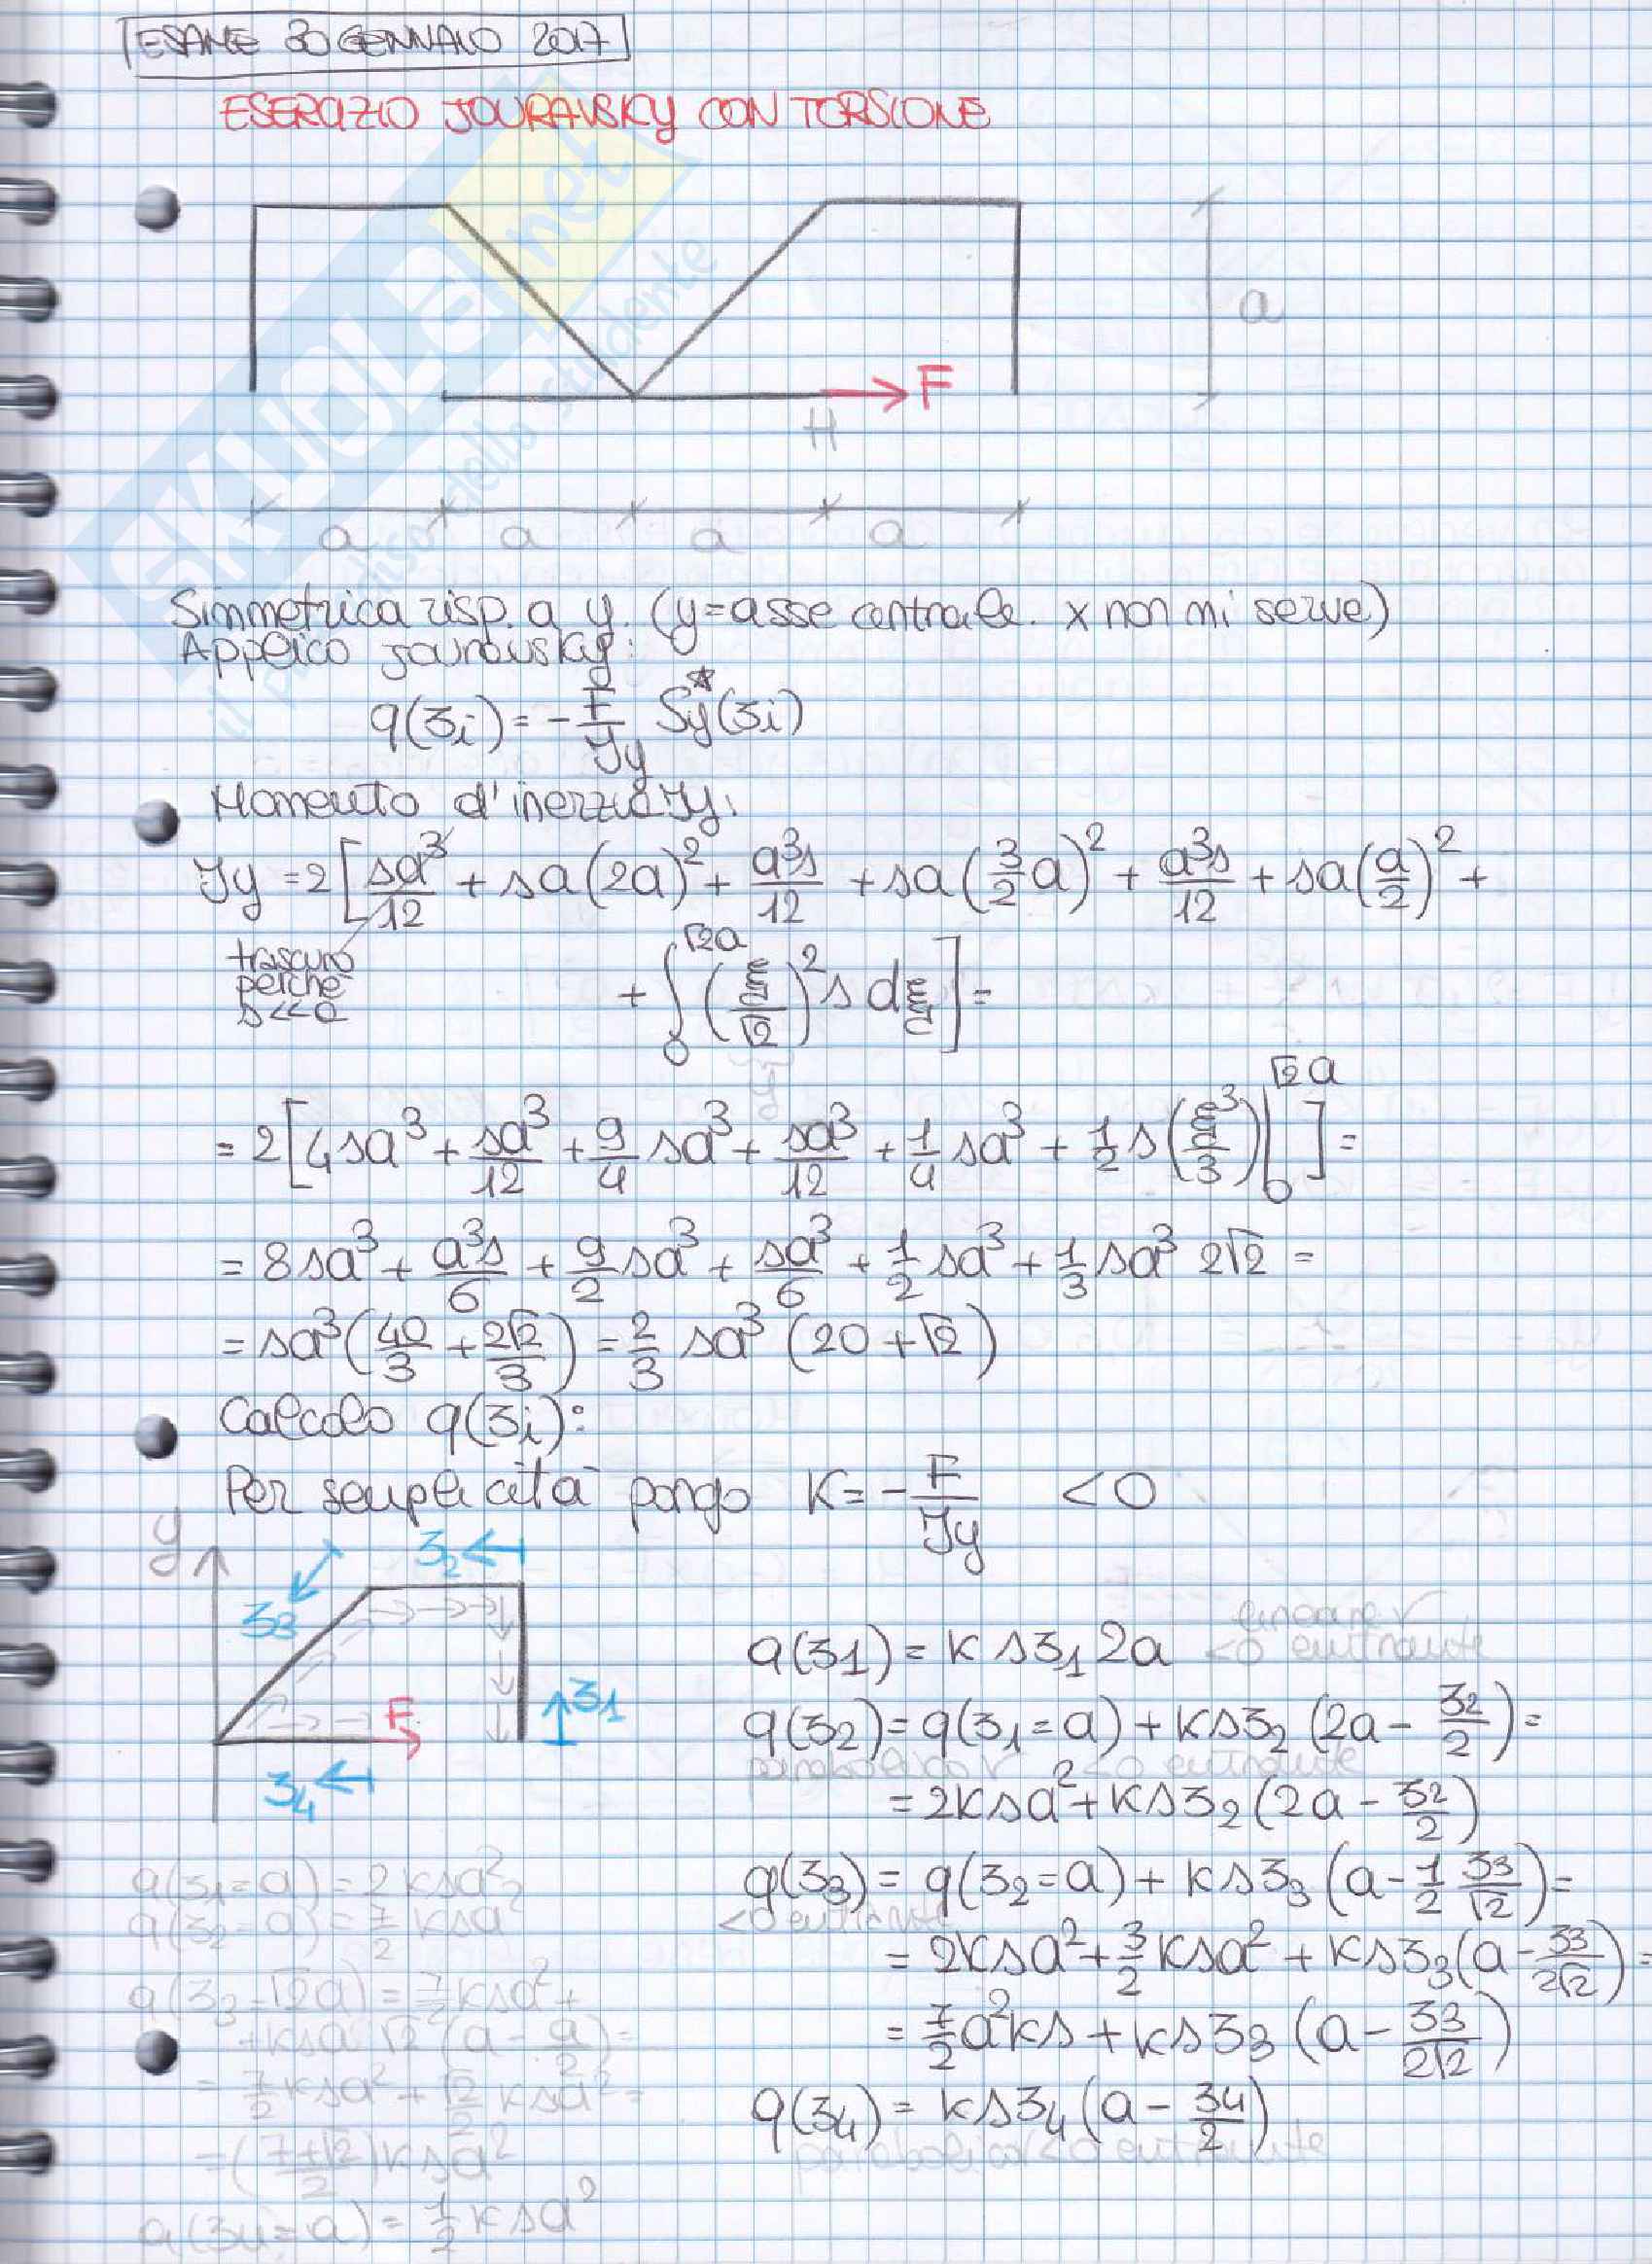 ESAME 30 GENNAIO 2017
ESERCIZIO JOURAVSKY CON TORSIONE
a
F
H
a a a a
SKUOLA.net
il paradiso dello studente
Simmetrica risp. a y. (y=asse centrale. x non mi serve)
Applico jouravsky:
q(ʒi) = -F/Jy Sy*(ʒi)
Momento d'inerzia Jy:
Jy = 2[sa³/12 + sa(2a)² + a³s/12 + sa(3/2 a)² + a³s/12 + sa(a/2)² +
trascuro
perché
s<<a
+ ∫₀^√2a (ξ/√2)² s dξ] =
= 2[4sa³ + sa³/12 + 9/4 sa³ + sa³/12 + 1/4 sa³ + 1/2 s(ξ³/3)|₀^√2a] =
= 8sa³ + a³s/6 + 9/2 sa³ + sa³/6 + 1/2 sa³ + 1/3 sa³ 2√2 =
= sa³(40/3 + 2√2/3) = 2/3 sa³ (20+√2)
Calcolo q(ʒi):
Per semplicità pongo K = -F/Jy < 0
y
ʒ2
ʒ3
F
ʒ1
ʒ4
q(ʒ1) = K s ʒ1 2a
lineare
<0 entrante
q(ʒ2) = q(ʒ1=a) + K s ʒ2 (2a - ʒ2/2) =
parabolico <0 entrante
= 2Ksa² + K s ʒ2 (2a - ʒ2/2)
q(ʒ3) = q(ʒ2=a) + K s ʒ3 (a - 1/2 ʒ3/√2) =
<0 entrante
= 2Ksa² + 3/2 Ksa² + K s ʒ3 (a - ʒ3/2√2) =
= 7/2 a²Ks + K s ʒ3 (a - ʒ3/2√2)
q(ʒ4) = K s ʒ4 (a - ʒ4/2)
parabolico <0 entrante
q(ʒ1=a) = 2Ksa²
q(ʒ2=a) = 7/2 Ksa²
q(ʒ3=√2a) = 7/2 Ksa² +
+ Ksa √2 (a - a/2) =
= 7/2 Ksa² + √2/2 Ksa² =
= (7+√2/2) Ksa²
q(ʒ4=a) = 1/2 Ksa²